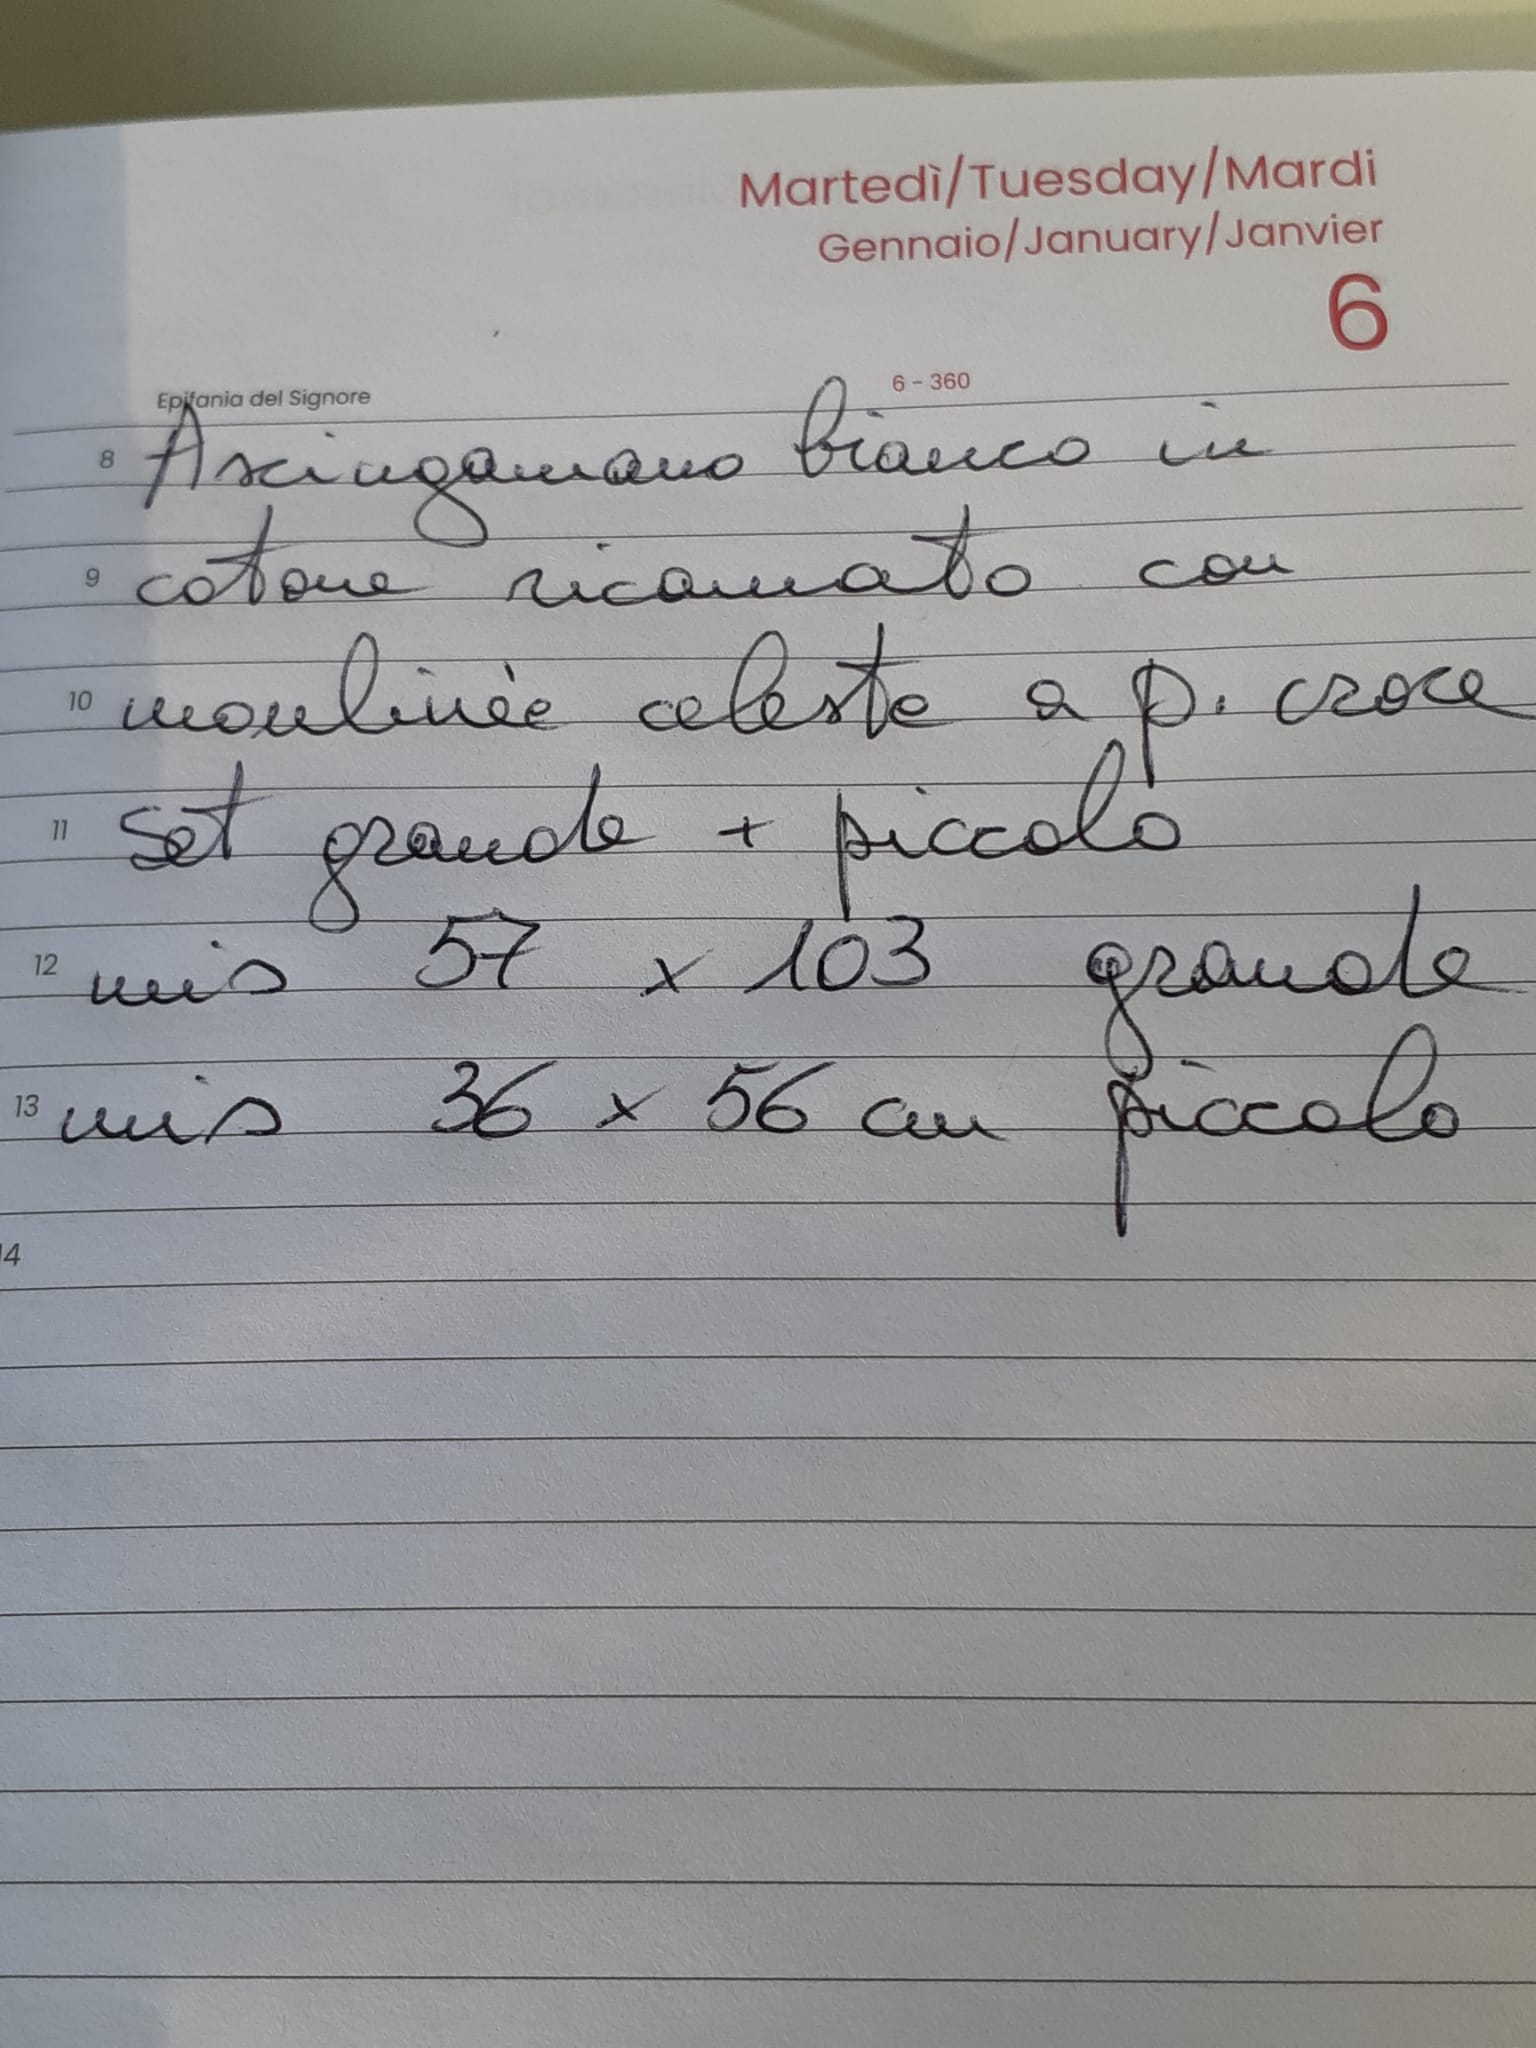 Martedì/Tuesday/Mardi
Gennaio/January/Janvier
6
Epifania del Signore 6 - 360
8 Asciugamano bianco in
9 cotone ricamato con
10 moulinèe celeste a p. croce
11 Set grande + piccolo
12 mis 57 x 103 grande
13 mis 36 x 56 cm piccolo
14